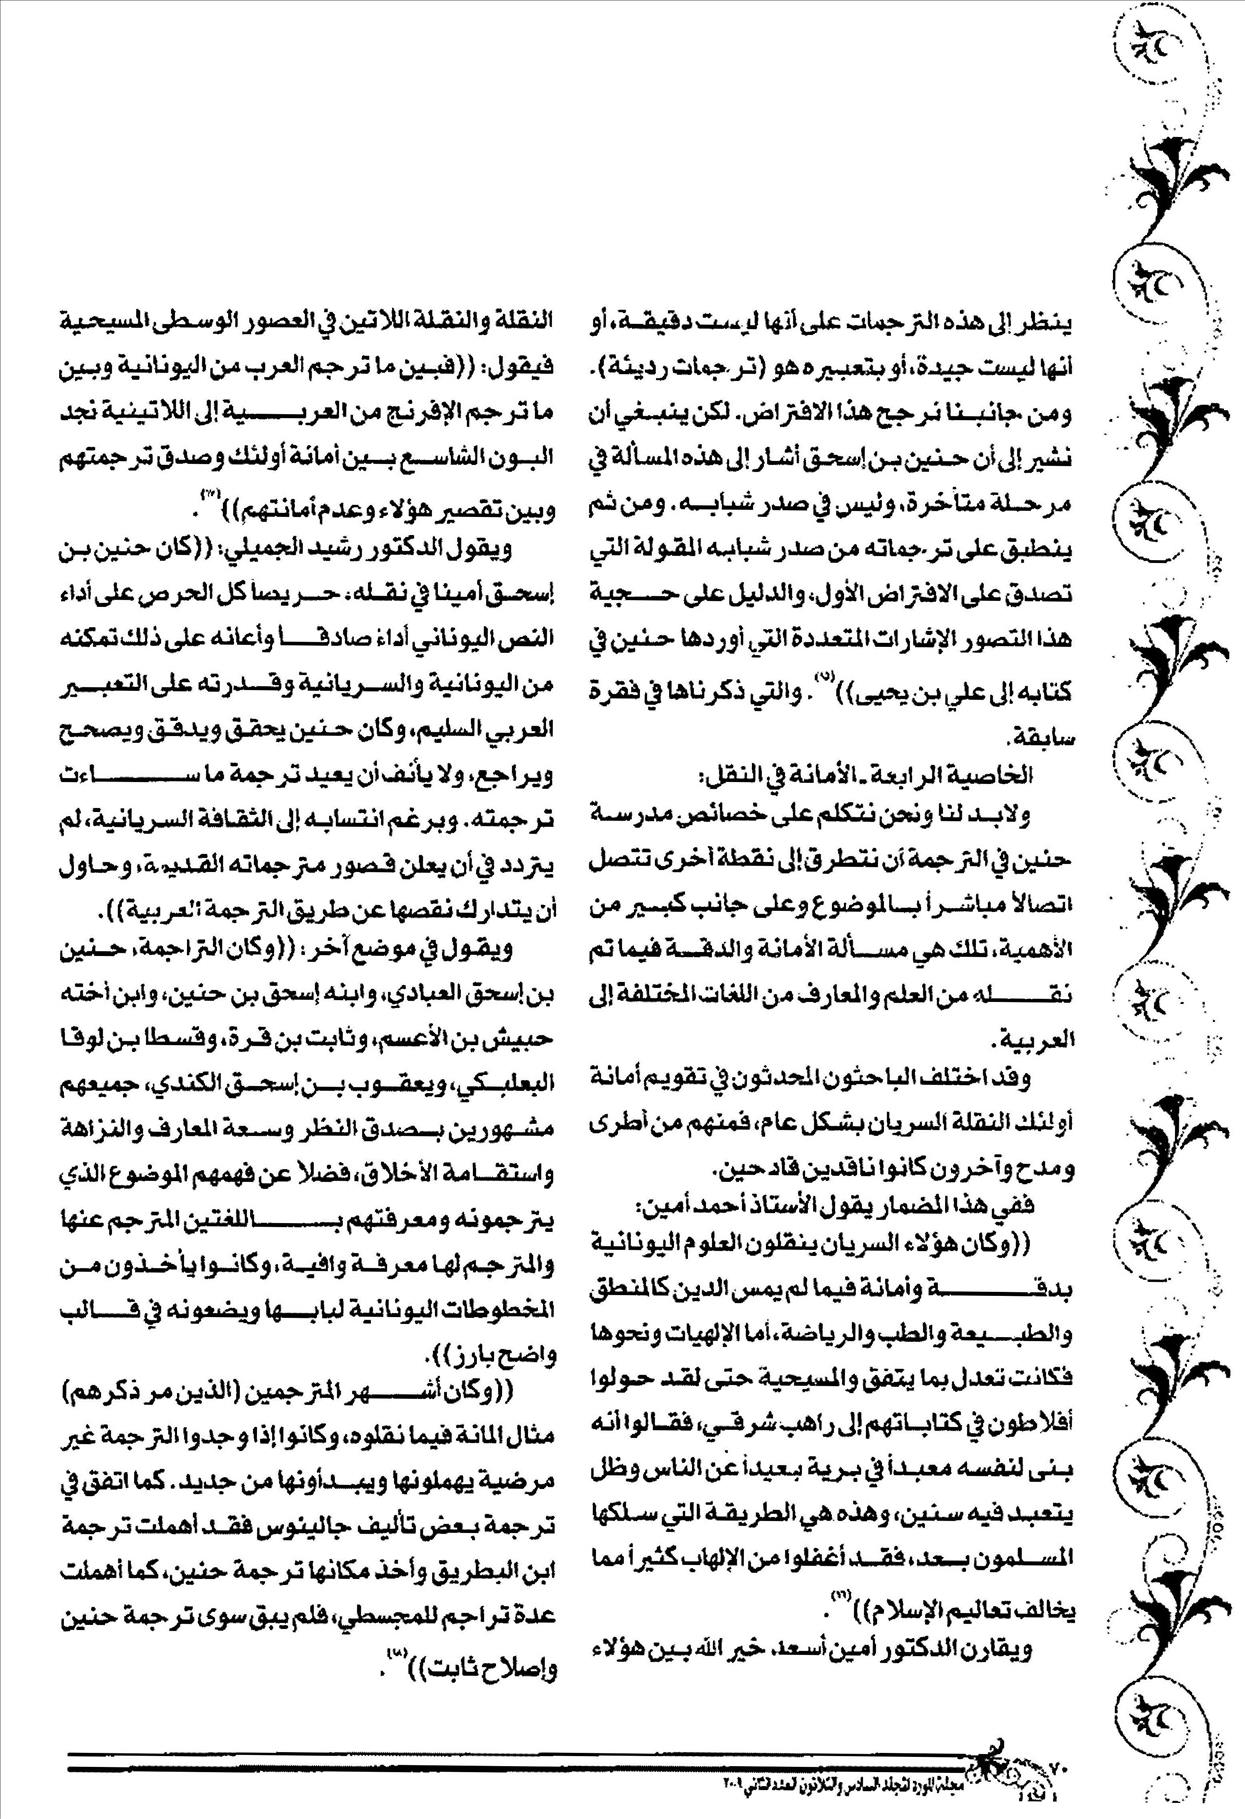 ينظر إلى هذه الترجمات على أنها ليست دقيقة، أو
أنها ليست جيدة، أو بتعبيره هو (ترجمات رديئة).
ومن جانبنا نرجح هذا الافتراض. لكن ينبغي أن
نشير إلى أن حنين بن إسحق أشار إلى هذه المسألة في
مرحلة متأخرة، وليس في صدر شبابه. ومن ثم
ينطبق على ترجماته من صدر شبابه المقولة التي
تصدق على الافتراض الأول، والدليل على حجية
هذا التصور الإشارات المتعددة التي أوردها حنين في
كتابه إلى علي بن يحيى))(١٥). والتي ذكرناها في فقرة
سابقة.
الخاصية الرابعة ـ الأمانة في النقل:
ولابد لنا ونحن نتكلم على خصائص مدرسة
حنين في الترجمة أن نتطرق إلى نقطة أخرى تتصل
اتصالاً مباشراً بالموضوع وعلى جانب كبير من
الأهمية، تلك هي مسألة الأمانة والدقة فيما تم
نقله من العلم والمعارف من اللغات المختلفة إلى
العربية.
وقد اختلف الباحثون المحدثون في تقويم أمانة
أولئك النقلة السريان بشكل عام، فمنهم من أطرى
ومدح وآخرون كانوا ناقدين قادحين.
ففي هذا المضمار يقول الأستاذ أحمد أمين:
((وكان هؤلاء السريان ينقلون العلوم اليونانية
بدقة وأمانة فيما لم يمس الدين كالمنطق
والطبيعة والطب والرياضة، أما الإلهيات ونحوها
فكانت تعدل بما يتفق والمسيحية حتى لقد حولوا
أفلاطون في كتاباتهم إلى راهب شرقي، فقالوا أنه
بنى لنفسه معبداً في برية بعيداً عن الناس وظل
يتعبد فيه سنين، وهذه هي الطريقة التي سلكها
المسلمون بعد، فقد أغفلوا من الإلهاب كثيراً مما
يخالف تعاليم الإسلام))(١٦).
ويقارن الدكتور أمين أسعد خير الله بين هؤلاء
النقلة والنقلة اللاتين في العصور الوسطى المسيحية
فيقول: ((فبين ما ترجم العرب من اليونانية وبين
ما ترجم الإفرنج من العربية إلى اللاتينية نجد
البون الشاسع بين أمانة أولئك وصدق ترجمتهم
وبين تقصير هؤلاء وعدم أمانتهم))(١٧).
ويقول الدكتور رشيد الجميلي: ((كان حنين بن
إسحق أمينا في نقله، حريصاً كل الحرص على أداء
النص اليوناني أداءً صادقا وأعانه على ذلك تمكنه
من اليونانية والسريانية وقدرته على التعبير
العربي السليم، وكان حنين يحقق ويدقق ويصحح
ويراجع، ولا يأنف أن يعيد ترجمة ما ساءت
ترجمته. وبرغم انتسابه إلى الثقافة السريانية، لم
يتردد في أن يعلن قصور مترجماته القديمة، وحاول
أن يتدارك نقصها عن طريق الترجمة العربية)).
ويقول في موضع آخر: ((وكان التراجمة، حنين
بن إسحق العبادي، وابنه إسحق بن حنين، وابن أخته
حبيش بن الأعسم، وثابت بن قرة، وقسطا بن لوقا
البعلبكي، ويعقوب بن إسحق الكندي، جميعهم
مشهورين بصدق النظر وسعة المعارف والنزاهة
واستقامة الأخلاق، فضلا عن فهمهم الموضوع الذي
يترجمونه ومعرفتهم باللغتين المترجم عنها
والمترجم لها معرفة وافية، وكانوا يأخذون من
المخطوطات اليونانية لبابها ويضعونه في قالب
واضح بارز)).
((وكان أشهر المترجمين (الذين مر ذكرهم)
مثال المانة فيما نقلوه، وكانوا إذا وجدوا الترجمة غير
مرضية يهملونها ويبدأونها من جديد. كما اتفق في
ترجمة بعض تأليف جالينوس فقد أهملت ترجمة
ابن البطريق وأخذ مكانها ترجمة حنين، كما أهملت
عدة تراجم للمجسطي، فلم يبق سوى ترجمة حنين
وإصلاح ثابت))(١٨).
٧٠
مجلة المورد المجلد السادس والثلاثون العدد الثاني ٢٠٠٩